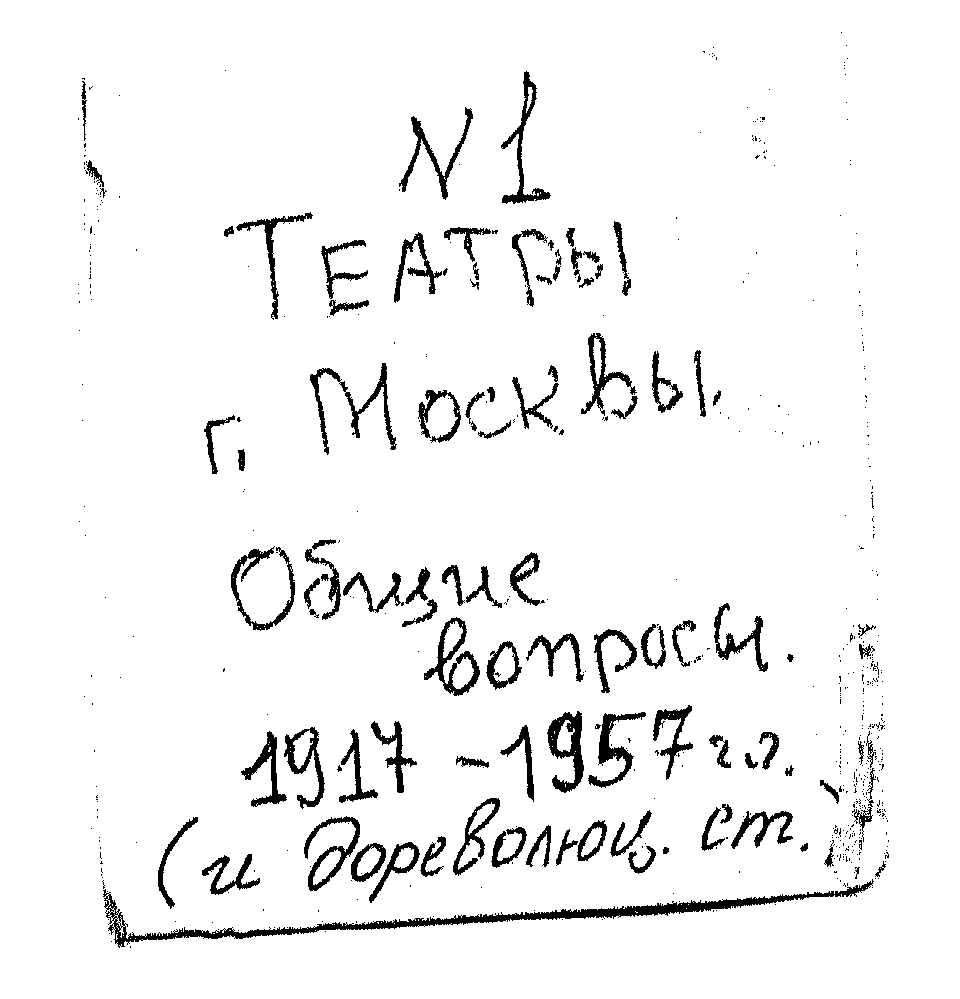 N 1
ТЕАТРЫ
г. Москвы.
Общие
вопросы.
1917-1957 гг.
(и дореволюц. ст.)